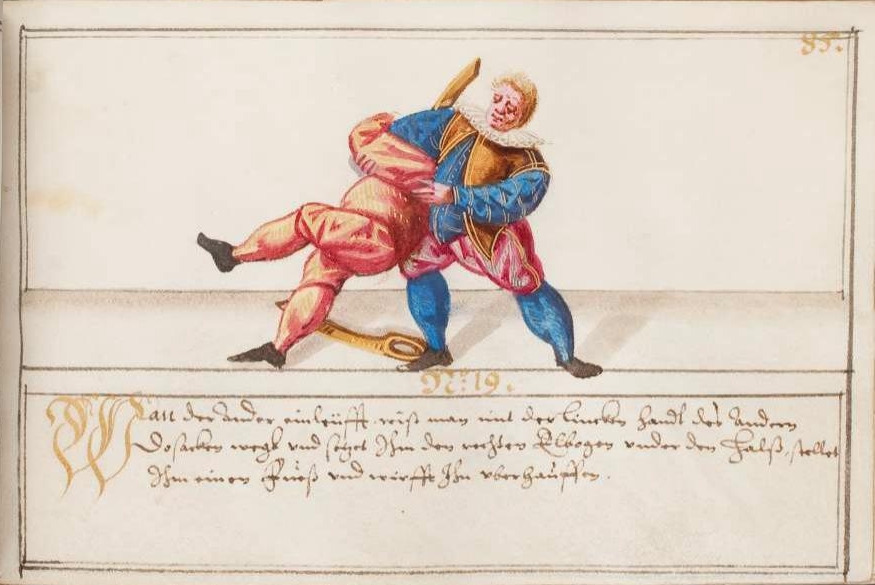 85.
N: 19.
Wan der Ander einleüfft reist man mit der lincken handt des Andern
Dosacken wegk vnd sezet Ihm den rechten Elbogen vnder den halß, stellet
Ihm einen Fueß vnd wirfft Ihn vberhauffen.